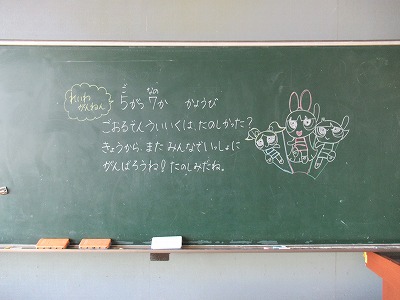 れいわ
がんねん
ご なの
5がつ 7か かようび
ごおるでんういいくは、たのしかった?
きょうから、また みんなでいっしょに
がんばろうね! たのしみだね。